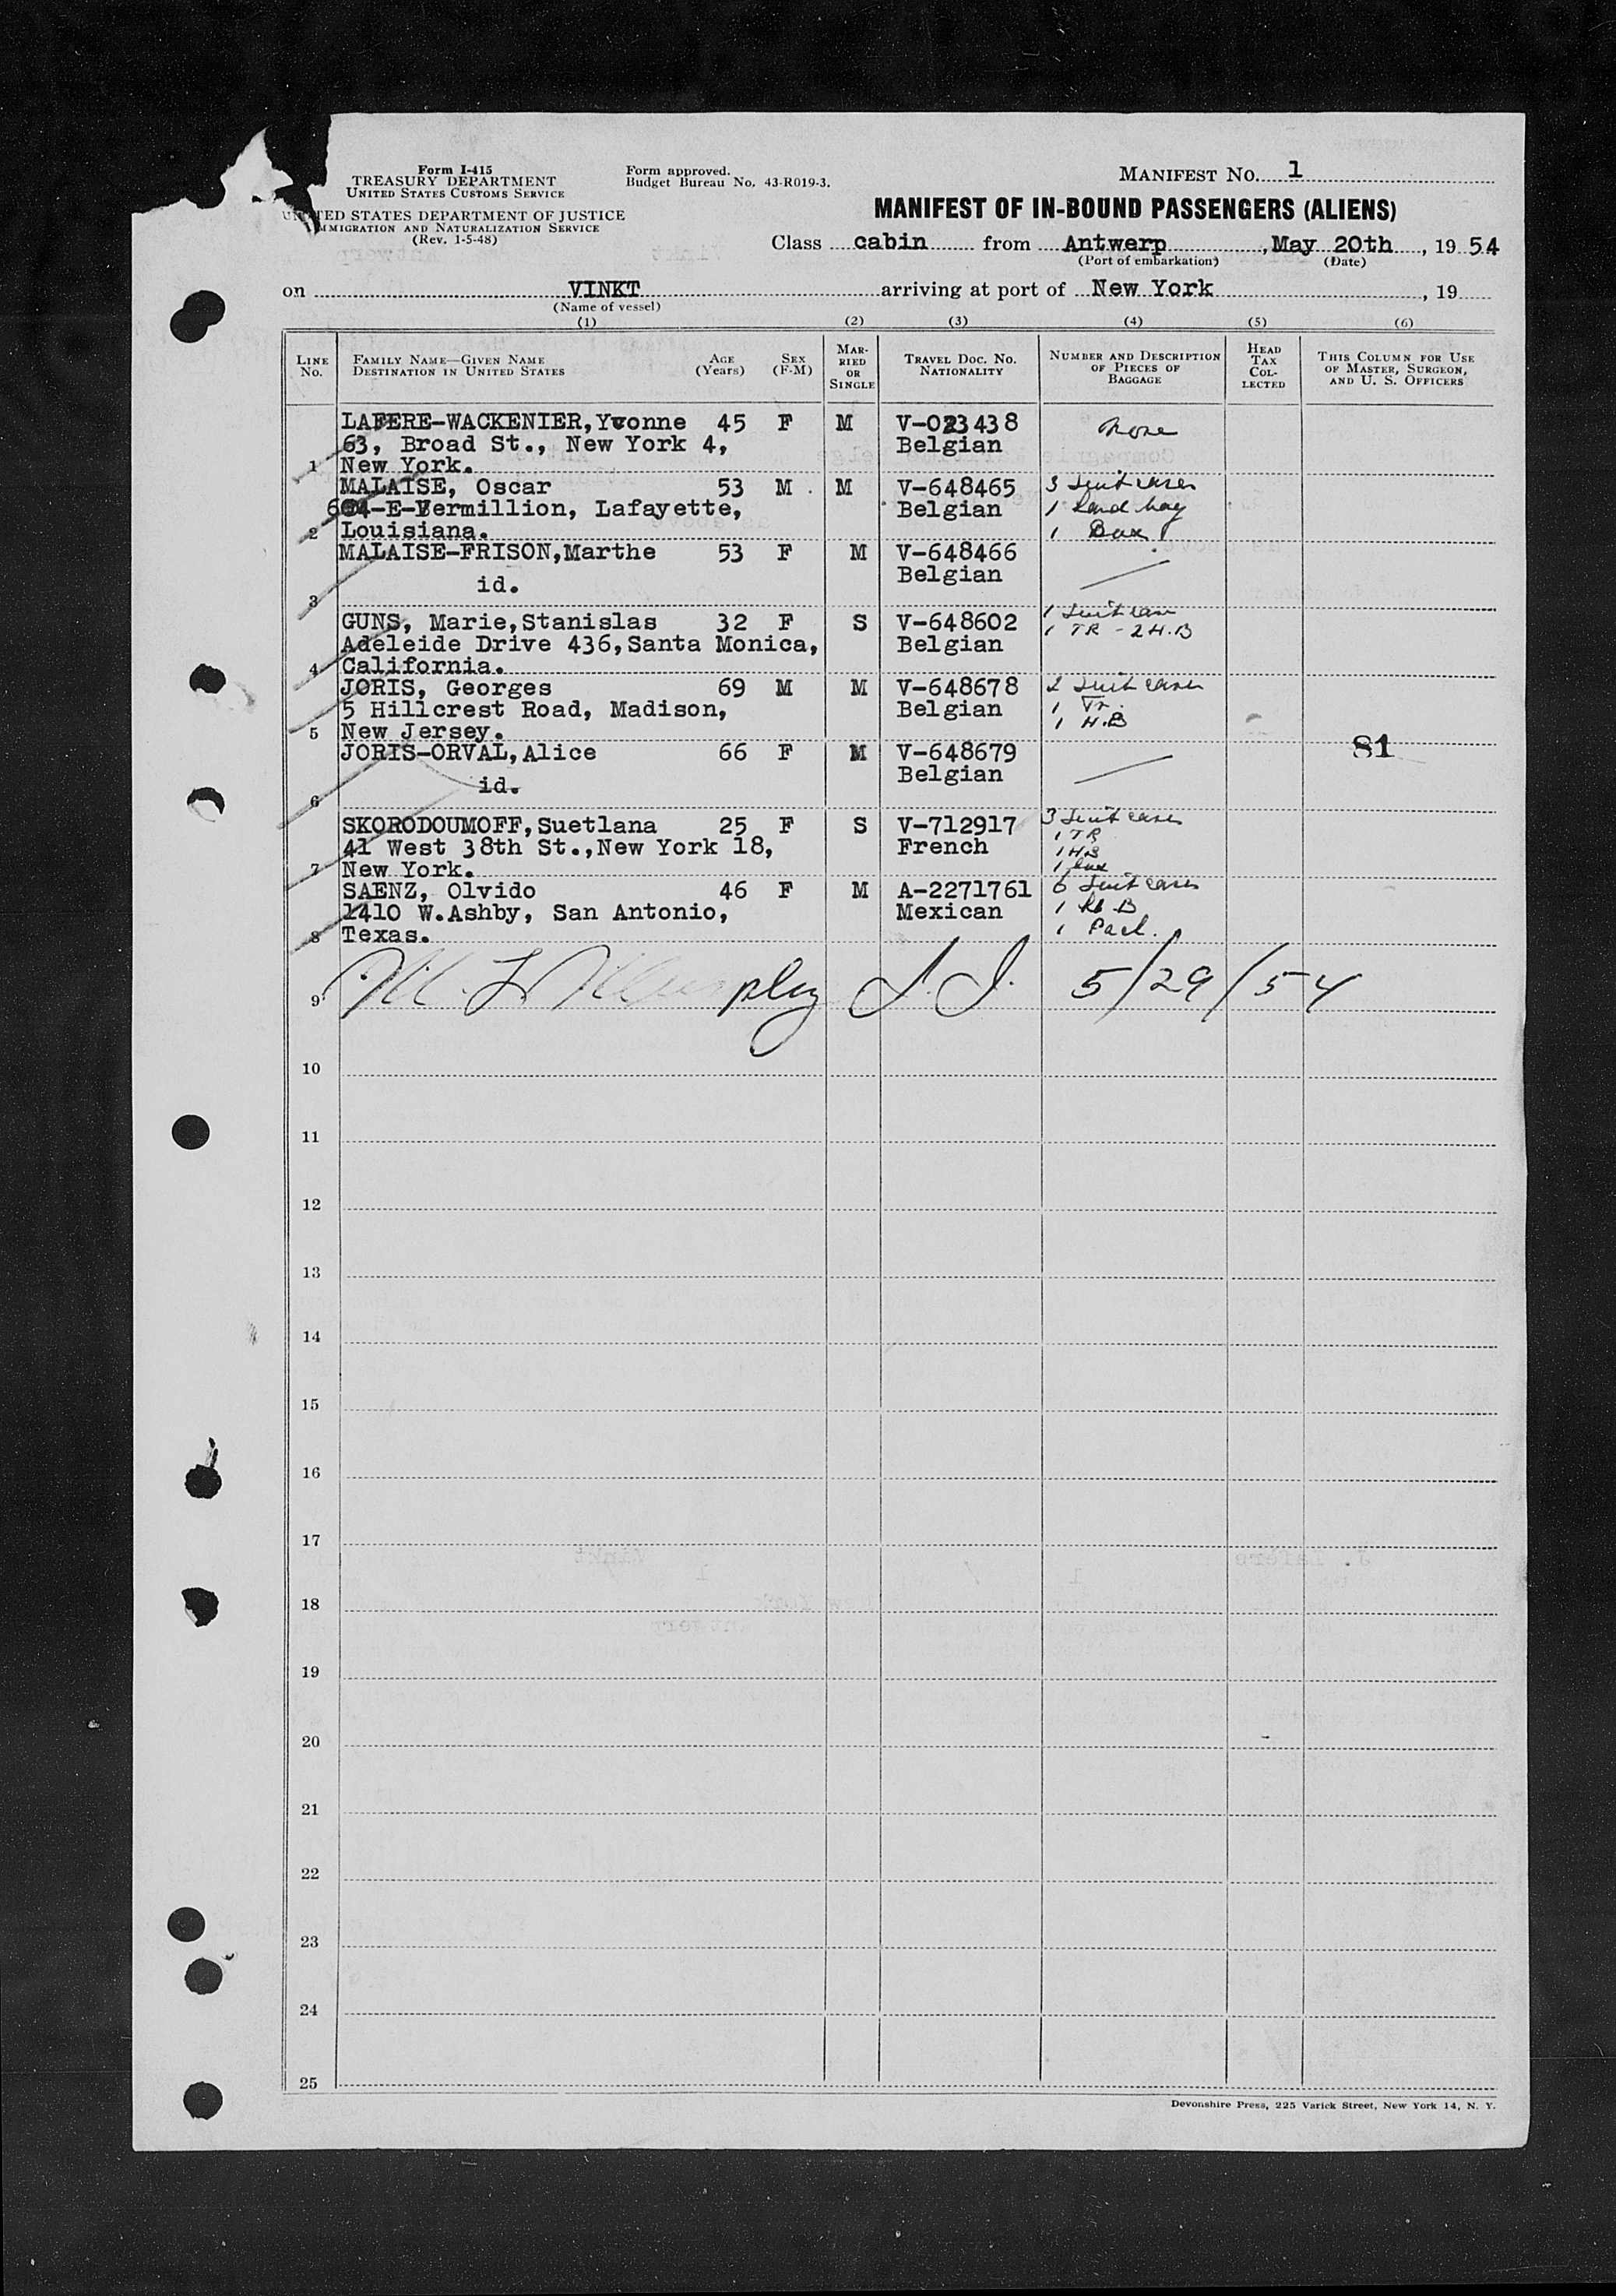 Form I-415
TREASURY DEPARTMENT
UNITED STATES CUSTOMS SERVICE
UNITED STATES DEPARTMENT OF JUSTICE
IMMIGRATION AND NATURALIZATION SERVICE
(Rev. 1-5-48)
Form approved.
Budget Bureau No. 43-R019-3.
MANIFEST NO. 1
MANIFEST OF IN-BOUND PASSENGERS (ALIENS)
Class cabin from Antwerp, May 20th, 1954
(Port of embarkation) (Date)
on VINKT arriving at port of New York, 19
(Name of vessel)
(1) (2) (3) (4) (5) (6)
LINE NO. FAMILY NAME—GIVEN NAME DESTINATION IN UNITED STATES AGE (Years) SEX (F-M) MARRIED OR SINGLE TRAVEL DOC. NO. NATIONALITY NUMBER AND DESCRIPTION OF PIECES OF BAGGAGE HEAD TAX COLLECTED THIS COLUMN FOR USE OF MASTER, SURGEON, AND U. S. OFFICERS
LAFERE-WACKENIER, Yvonne 45 F M V-023438 none
63, Broad St., New York 4, Belgian
1 New York.
MALAISE, Oscar 53 M M V-648465 3 Suit cases
604-E-Vermillion, Lafayette, Belgian 1 hand bag
2 Louisiana. 1 Box
MALAISE-FRISON, Marthe 53 F M V-648466
Belgian
3 id.
GUNS, Marie, Stanislas 32 F S V-648602 1 Suit case
Adeleide Drive 436, Santa Monica, Belgian 1 TR - 2 H.B
4 California.
JORIS, Georges 69 M M V-648678 2 Suit cases
5 Hillcrest Road, Madison, Belgian 1 Tr.
5 New Jersey. 1 H.B
JORIS-ORVAL, Alice 66 F M V-648679 81
Belgian
6 id.
SKORODOUMOFF, Suetlana 25 F S V-712917 3 Suit cases
41 West 38th St., New York 18, French 1 TR
1 HB
7 New York. 1 box
SAENZ, Olvido 46 F M A-2271761 6 Suit cases
1410 W.Ashby, San Antonio, Mexican 1 H B
8 Texas. 1 Pack.
9 5/29/54
10
11
12
13
14
15
16
17
18
19
20
21
22
23
24
25
Devonshire Press, 225 Varick Street, New York 14, N. Y.